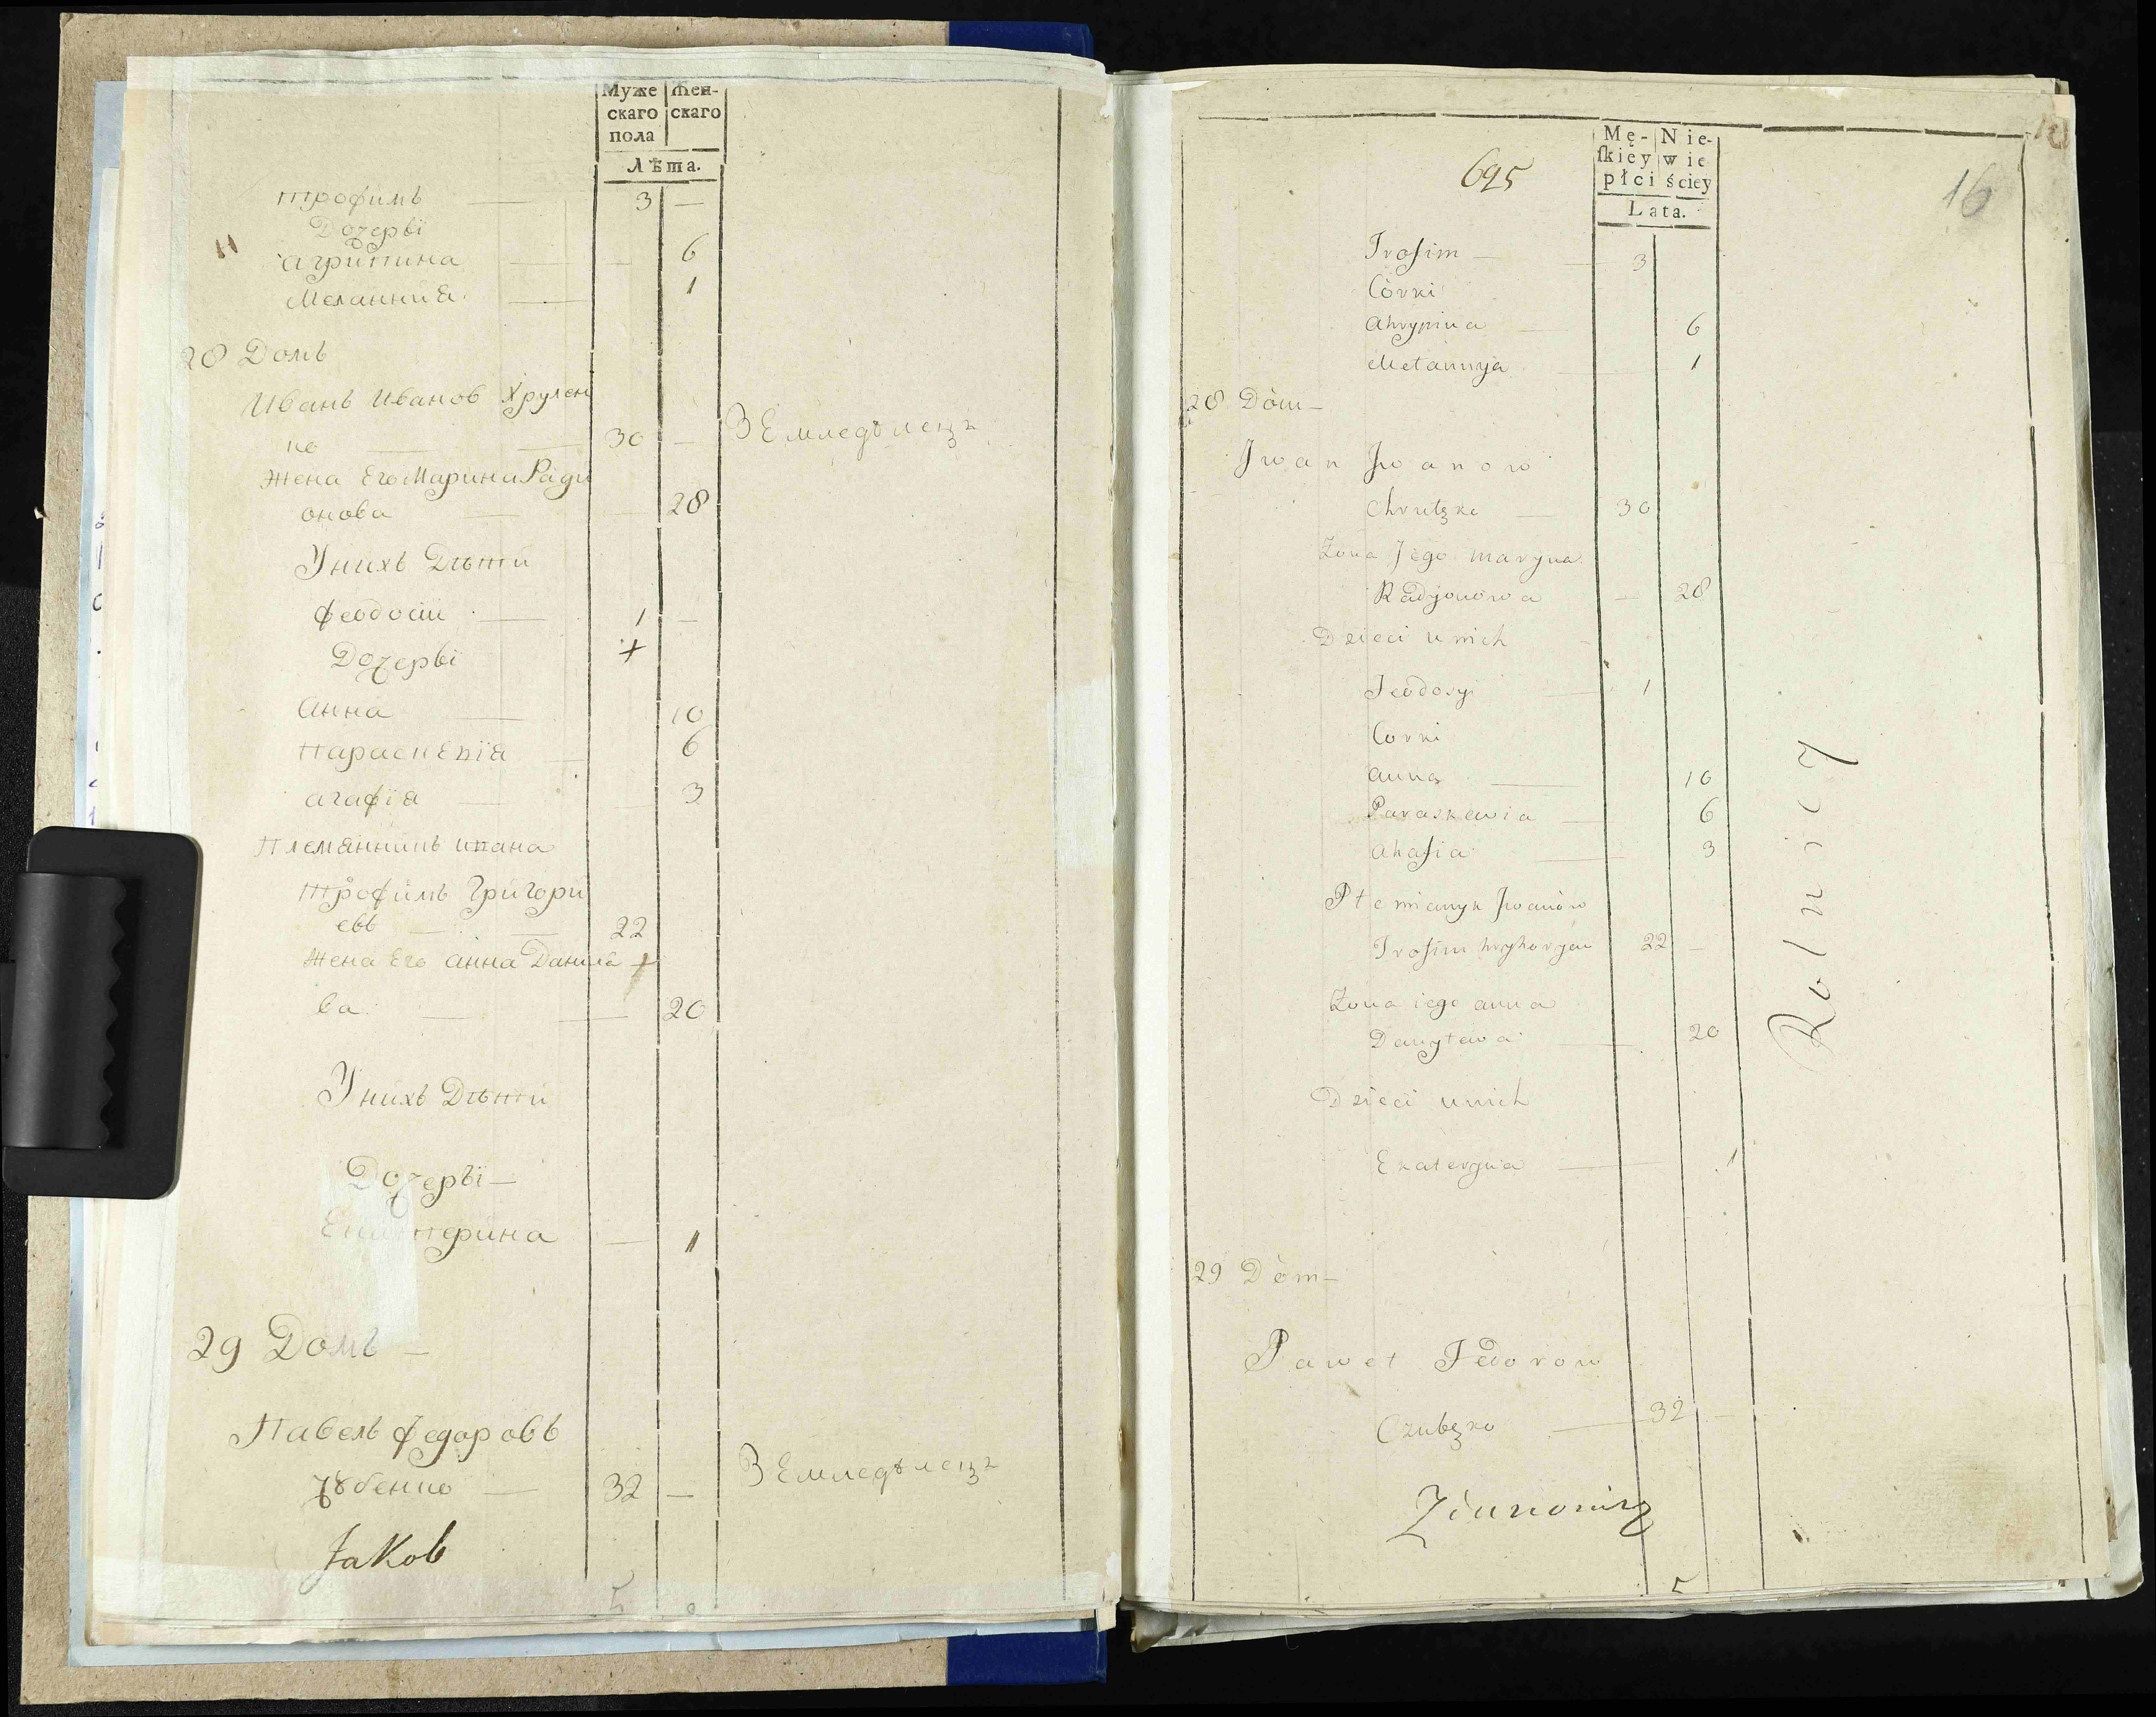 Муже
скаго
пола
Жен-
скаго
Лѣта.
Трофимъ — 3 —
Дочерьі
Агрипина — — 6
Меланния — 1
28 Домъ
Иванъ Иванов Хрулен
ко — — 30 — Земледѣлецъ
Жена Его Марина Ради
онова — — 28
У нихъ Дѣти
Феодосий — 1 —
Дочерьі +
Анна — 10
Параскевїя — 6
Агафїя — 3
Племянникъ ивана
Трофимъ Григори
евъ — — 22
Жена Его Анна Данила +
ва — — 20
У нихъ Дѣти
Дочерьї —
Екатерина — 1
29 Домъ —
Павелъ Федоровъ
Чубенко — 32 — Земледѣлецъ
Jakob
5
695
Mę-
skiey
płci
Nie-
wie
ściey
Lata.
16
Trofim — — 3
Córki
Ahrypina — 6
Mełannija — 1
28 Dóm —
Jwan Jwanow
Chrulęko — 30
Zona Jego maryna
Radyonowa — 28
Dzieci unich
Feodosyi — 1
Corki
anna — 10
Paraskewia — 6
ahafia — 3
Płemianyk Jwanów
Trofim hryhoryew 22 —
Zona iego anna
Danyława — 20
Dzieci unich
Ekateryna — 1
Rolnicy
29 Dóm —
Paweł Fedorow
Czubęko — 32 —
5